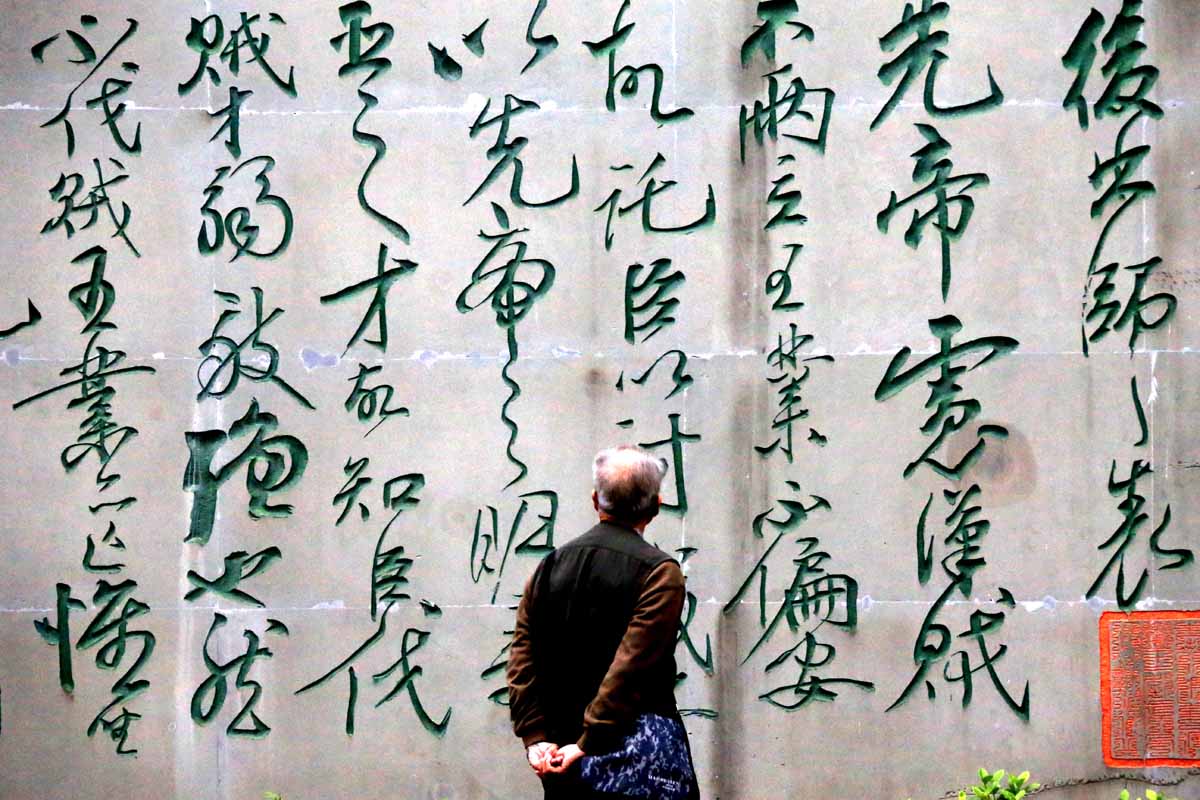 後出師表
先帝慮漢賊
不兩立王業不偏安
故託臣以討賊
以先帝之明
臣之才故知臣伐
賊才弱敵強也然
不伐賊王業亦亡惟坐